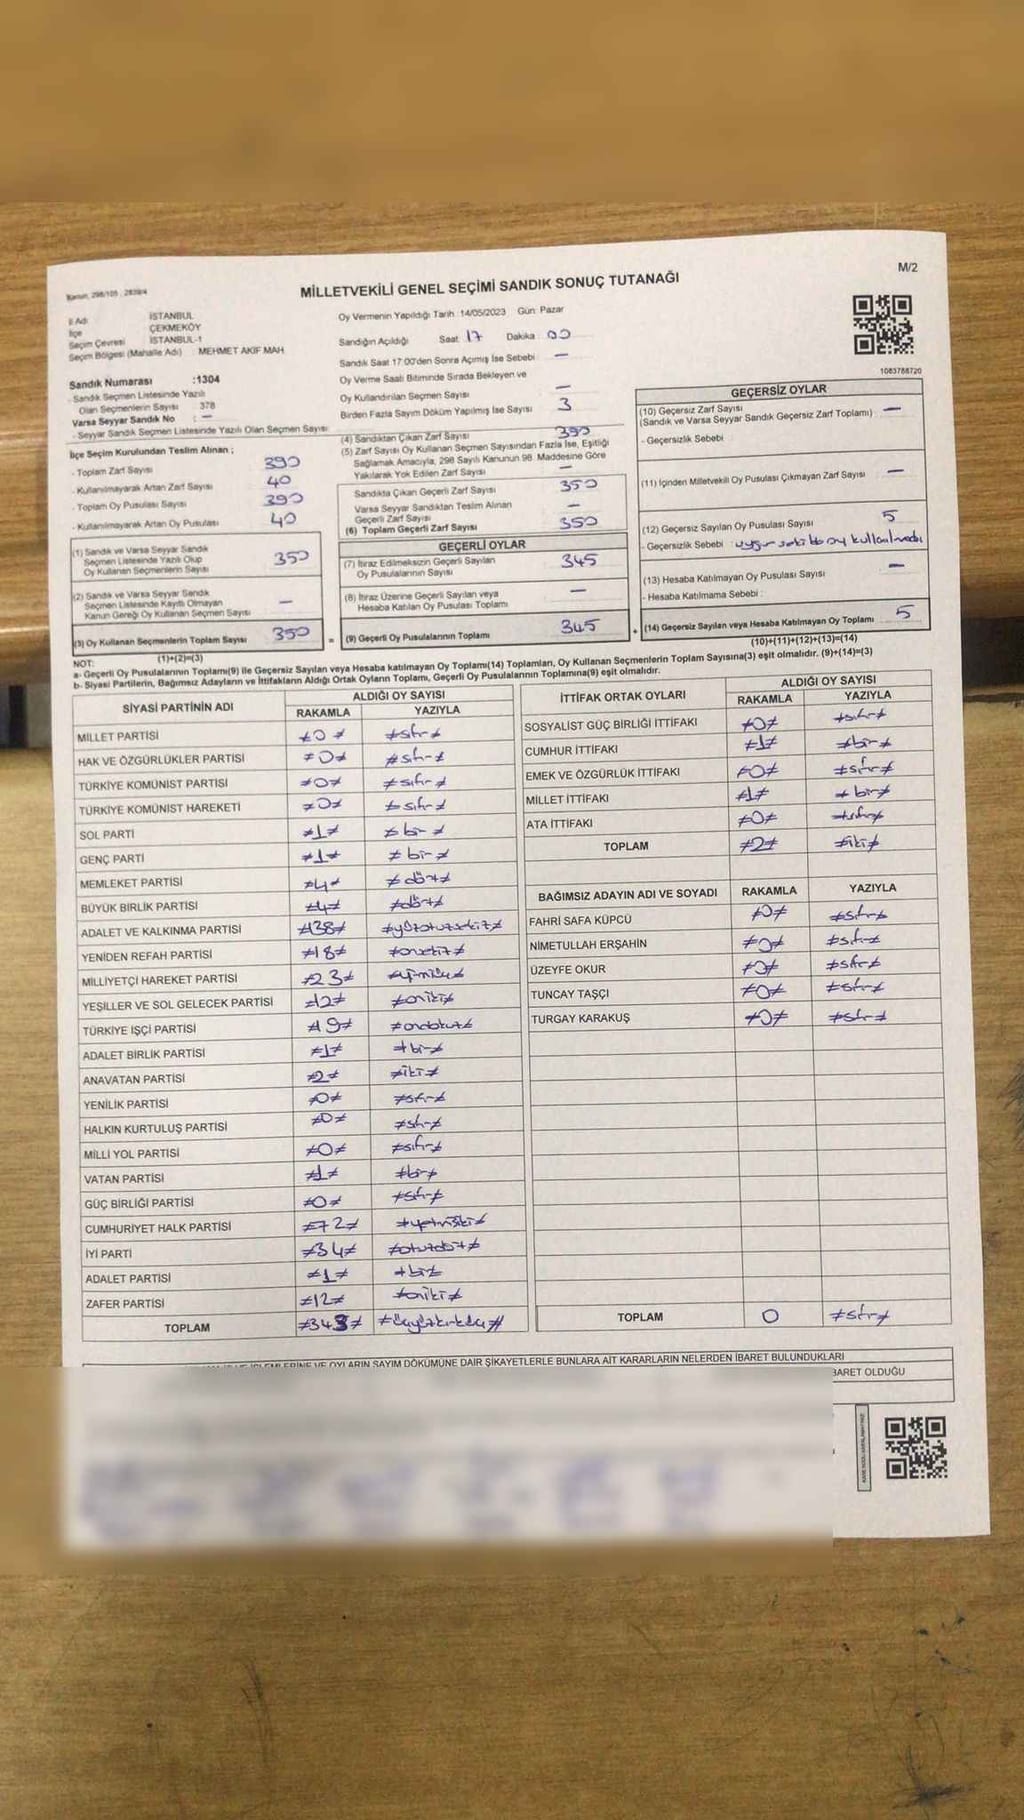 Kanun, 298/105 , 2839/4
M/2
MİLLETVEKİLİ GENEL SEÇİMİ SANDIK SONUÇ TUTANAĞI
İl Adı İSTANBUL
İlçe ÇEKMEKÖY
Seçim Çevresi İSTANBUL-1
Seçim Bölgesi (Mahalle Adı) MEHMET AKİF MAH
Sandık Numarası :1304
- Sandık Seçmen Listesinde Yazılı
Olan Seçmenlerin Sayısı 378
Varsa Seyyar Sandık No : -
- Seyyar Sandık Seçmen Listesinde Yazılı Olan Seçmen Sayısı
Oy Vermenin Yapıldığı Tarih :14/05/2023 Gün: Pazar
Sandığın Açıldığı Saat 17 Dakika 00
Sandık Saat 17:00'den Sonra Açımış İse Sebebi -
Oy Verme Saati Bitiminde Sırada Bekleyen ve
Oy Kullandırılan Seçmen Sayısı -
Birden Fazla Sayım Döküm Yapılmış İse Sayısı 3
1083788720
İlçe Seçim Kurulundan Teslim Alınan ;
- Toplam Zarf Sayısı 390
- Kullanılmayarak Artan Zarf Sayısı 40
- Toplam Oy Pusulası Sayısı 390
- Kullanılmayarak Artan Oy Pusulası 40
(1) Sandık ve Varsa Seyyar Sandık
Seçmen Listesinde Yazılı Olup
Oy Kullanan Seçmenlerin Sayısı 350
(2) Sandık ve Varsa Seyyar Sandık
Seçmen Listesinde Kayıtlı Olmayan
Kanun Gereği Oy Kullanan Seçmen Sayısı -
(3) Oy Kullanan Seçmenlerin Toplam Sayısı 350 =
(1)+(2)=(3)
(4) Sandıktan Çıkan Zarf Sayısı
(5) Zarf Sayısı Oy Kullanan Seçmen Sayısından Fazla İse, Eşitliği
Sağlamak Amacıyla, 298 Sayılı Kanunun 98. Maddesine Göre
Yakılarak Yok Edilen Zarf Sayısı -
Sandıkta Çıkan Geçerli Zarf Sayısı 350
Varsa Seyyar Sandıktan Teslim Alınan
Geçerli Zarf Sayısı -
(6) Toplam Geçerli Zarf Sayısı 350
GEÇERLİ OYLAR
(7) İtiraz Edilmeksizin Geçerli Sayılan
Oy Pusulalarının Sayısı 345
(8) İtiraz Üzerine Geçerli Sayılan veya
Hesaba Katılan Oy Pusulası Toplamı -
(9) Geçerli Oy Pusulalarının Toplamı 345 +
GEÇERSİZ OYLAR
(10) Geçersiz Zarf Sayısı
(Sandık ve Varsa Seyyar Sandık Geçersiz Zarf Toplamı) -
- Geçersizlik Sebebi
(11) İçinden Milletvekili Oy Pusulası Çıkmayan Zarf Sayısı -
(12) Geçersiz Sayılan Oy Pusulası Sayısı 5
- Geçersizlik Sebebi uygun şekilde oy kullanılmadı
(13) Hesaba Katılmayan Oy Pusulası Sayısı -
- Hesaba Katılmama Sebebi :
(14) Geçersiz Sayılan veya Hesaba Katılmayan Oy Toplamı 5
(10)+(11)+(12)+(13)=(14)
NOT:
a- Geçerli Oy Pusulalarının Toplamı(9) ile Geçersiz Sayılan veya Hesaba katılmayan Oy Toplamı(14) Toplamları, Oy Kullanan Seçmenlerin Toplam Sayısına(3) eşit olmalıdır. (9)+(14)=(3)
b- Siyasi Partilerin, Bağımsız Adayların ve İttifakların Aldığı Ortak Oyların Toplamı, Geçerli Oy Pusulalarının Toplamına(9) eşit olmalıdır.
SİYASİ PARTİNİN ADI ALDIĞI OY SAYISI
RAKAMLA YAZIYLA
MİLLET PARTİSİ ≠0≠ ≠sıfır≠
HAK VE ÖZGÜRLÜKLER PARTİSİ ≠0≠ ≠sıfır≠
TÜRKİYE KOMÜNİST PARTİSİ ≠0≠ ≠sıfır≠
TÜRKİYE KOMÜNİST HAREKETİ ≠0≠ ≠sıfır≠
SOL PARTİ ≠1≠ ≠bir≠
GENÇ PARTİ ≠1≠ ≠bir≠
MEMLEKET PARTİSİ ≠4≠ ≠dört≠
BÜYÜK BİRLİK PARTİSİ ≠4≠ ≠dört≠
ADALET VE KALKINMA PARTİSİ ≠138≠ ≠yüzotuzsekiz≠
YENİDEN REFAH PARTİSİ ≠18≠ ≠onsekiz≠
MİLLİYETÇİ HAREKET PARTİSİ ≠23≠ ≠yirmiüç≠
YEŞİLLER VE SOL GELECEK PARTİSİ ≠12≠ ≠oniki≠
TÜRKİYE İŞÇİ PARTİSİ ≠19≠ ≠ondokuz≠
ADALET BİRLİK PARTİSİ ≠1≠ ≠bir≠
ANAVATAN PARTİSİ ≠2≠ ≠iki≠
YENİLİK PARTİSİ ≠0≠ ≠sıfır≠
HALKIN KURTULUŞ PARTİSİ ≠0≠ ≠sıfır≠
MİLLİ YOL PARTİSİ ≠0≠ ≠sıfır≠
VATAN PARTİSİ ≠1≠ ≠bir≠
GÜÇ BİRLİĞİ PARTİSİ ≠0≠ ≠sıfır≠
CUMHURİYET HALK PARTİSİ ≠72≠ ≠yetmişiki≠
İYİ PARTİ ≠34≠ ≠otuzdört≠
ADALET PARTİSİ ≠1≠ ≠bir≠
ZAFER PARTİSİ ≠12≠ ≠oniki≠
TOPLAM ≠343≠ ≠üçyüzkırküç≠
İTTİFAK ORTAK OYLARI ALDIĞI OY SAYISI
RAKAMLA YAZIYLA
SOSYALİST GÜÇ BİRLİĞİ İTTİFAKI ≠0≠ ≠sıfır≠
CUMHUR İTTİFAKI ≠1≠ ≠bir≠
EMEK VE ÖZGÜRLÜK İTTİFAKI ≠0≠ ≠sıfır≠
MİLLET İTTİFAKI ≠1≠ ≠bir≠
ATA İTTİFAKI ≠0≠ ≠sıfır≠
TOPLAM ≠2≠ ≠iki≠
BAĞIMSIZ ADAYIN ADI VE SOYADI RAKAMLA YAZIYLA
FAHRİ SAFA KÜPCÜ ≠0≠ ≠sıfır≠
NİMETULLAH ERŞAHİN ≠0≠ ≠sıfır≠
ÜZEYFE OKUR ≠0≠ ≠sıfır≠
TUNCAY TAŞÇI ≠0≠ ≠sıfır≠
TURGAY KARAKUŞ ≠0≠ ≠sıfır≠
TOPLAM 0 ≠sıfır≠
İŞLEMLERİNE VE OYLARIN SAYIM DÖKÜMÜNE DAİR ŞİKAYETLERLE BUNLARA AİT KARARLARIN NELERDEN İBARET BULUNDUKLARI
BARET OLDUĞU